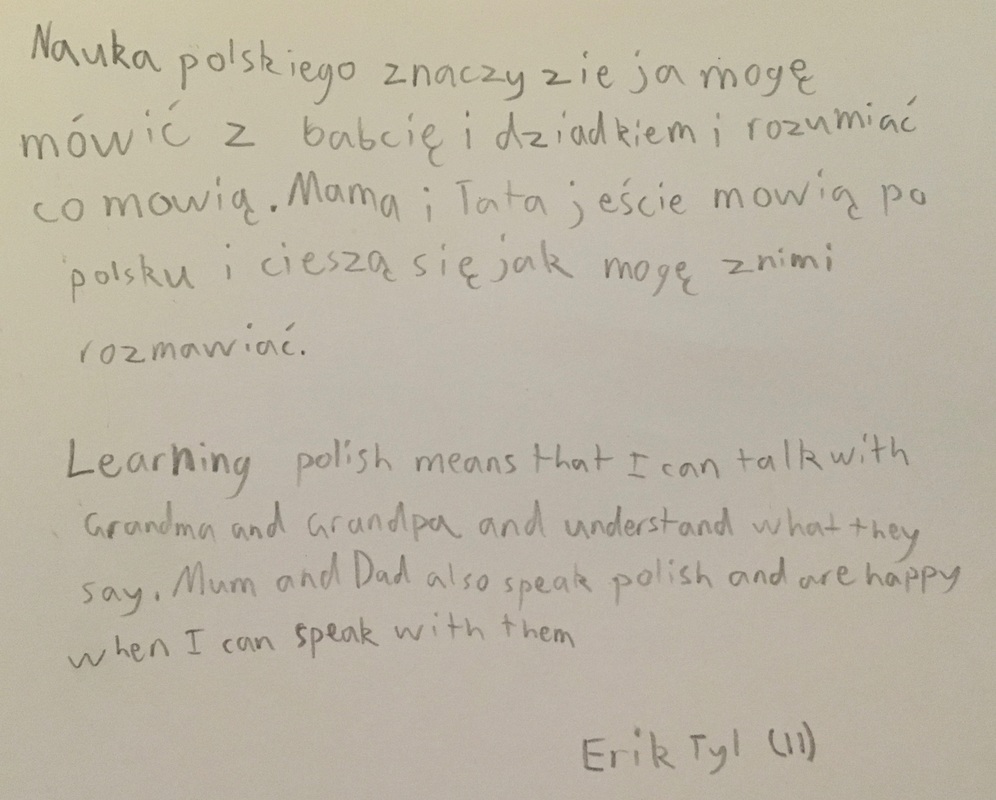 Nauka polskiego znaczy zie ja mogę
mówić z babcię i dziadkiem i rozumiać
co mowią. Mama i Tata jeście mowią po
polsku i cieszą się jak mogę znimi
rozmawiać.
Learning polish means that I can talk with
Grandma and Grandpa and understand what they
say. Mum and Dad also speak polish and are happy
when I can speak with them
Erik Tyl (11)